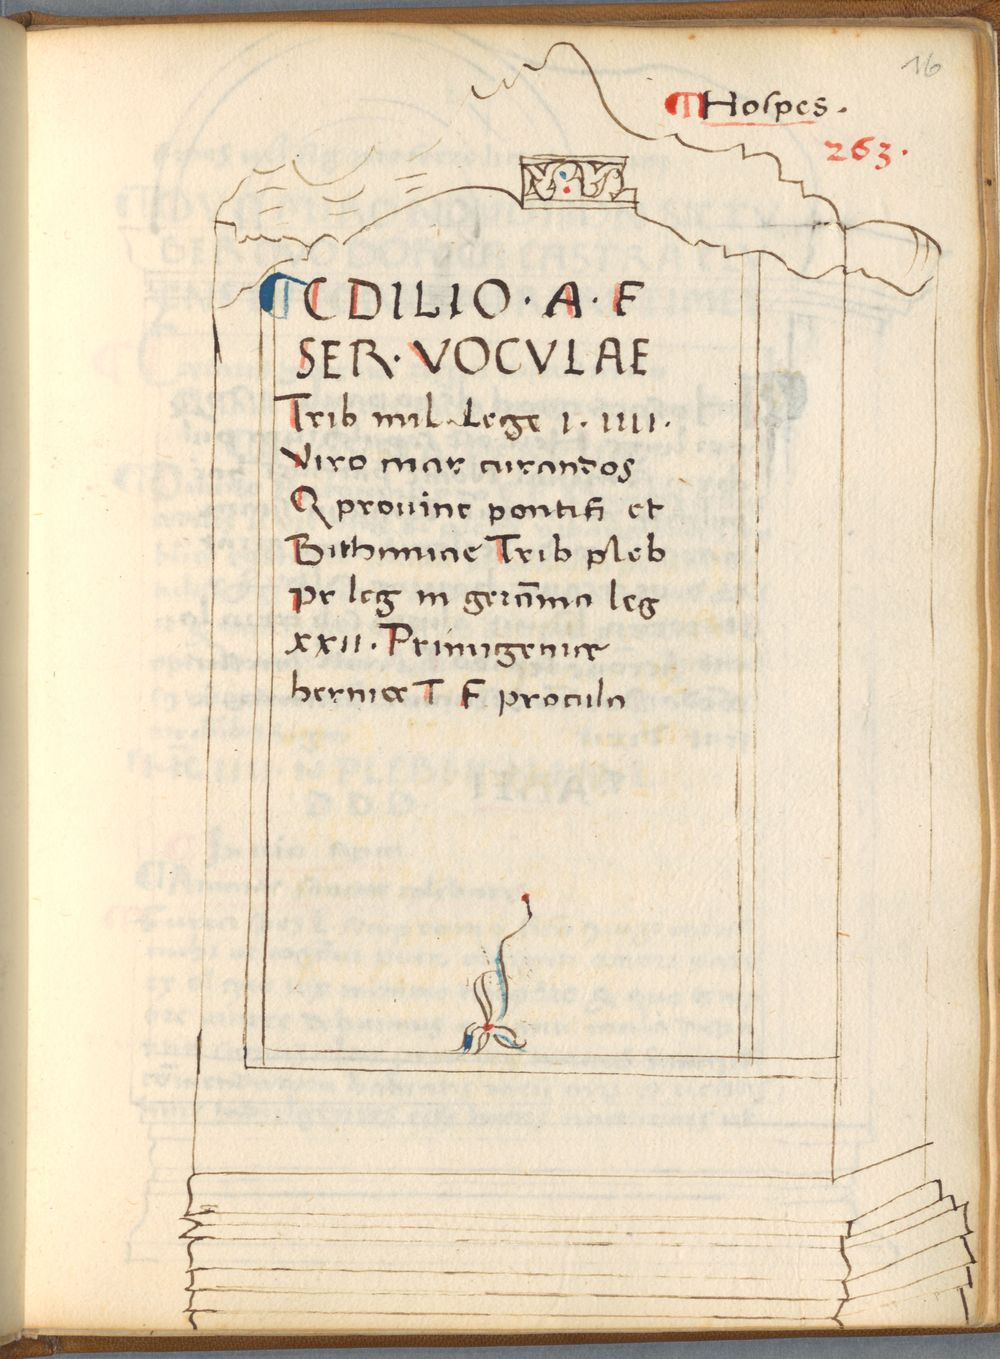 16
Hoſpes.
263.
C DILIO · A · F
SER · VOCVLAE
Trib mil Lege I · IIII ·
Viro mar curandos
Q prouinc pontifi et
Bithiniae Trib pleb
pr leg in gerāma leg
xxII · Primigeniæ
herniæ T F procula